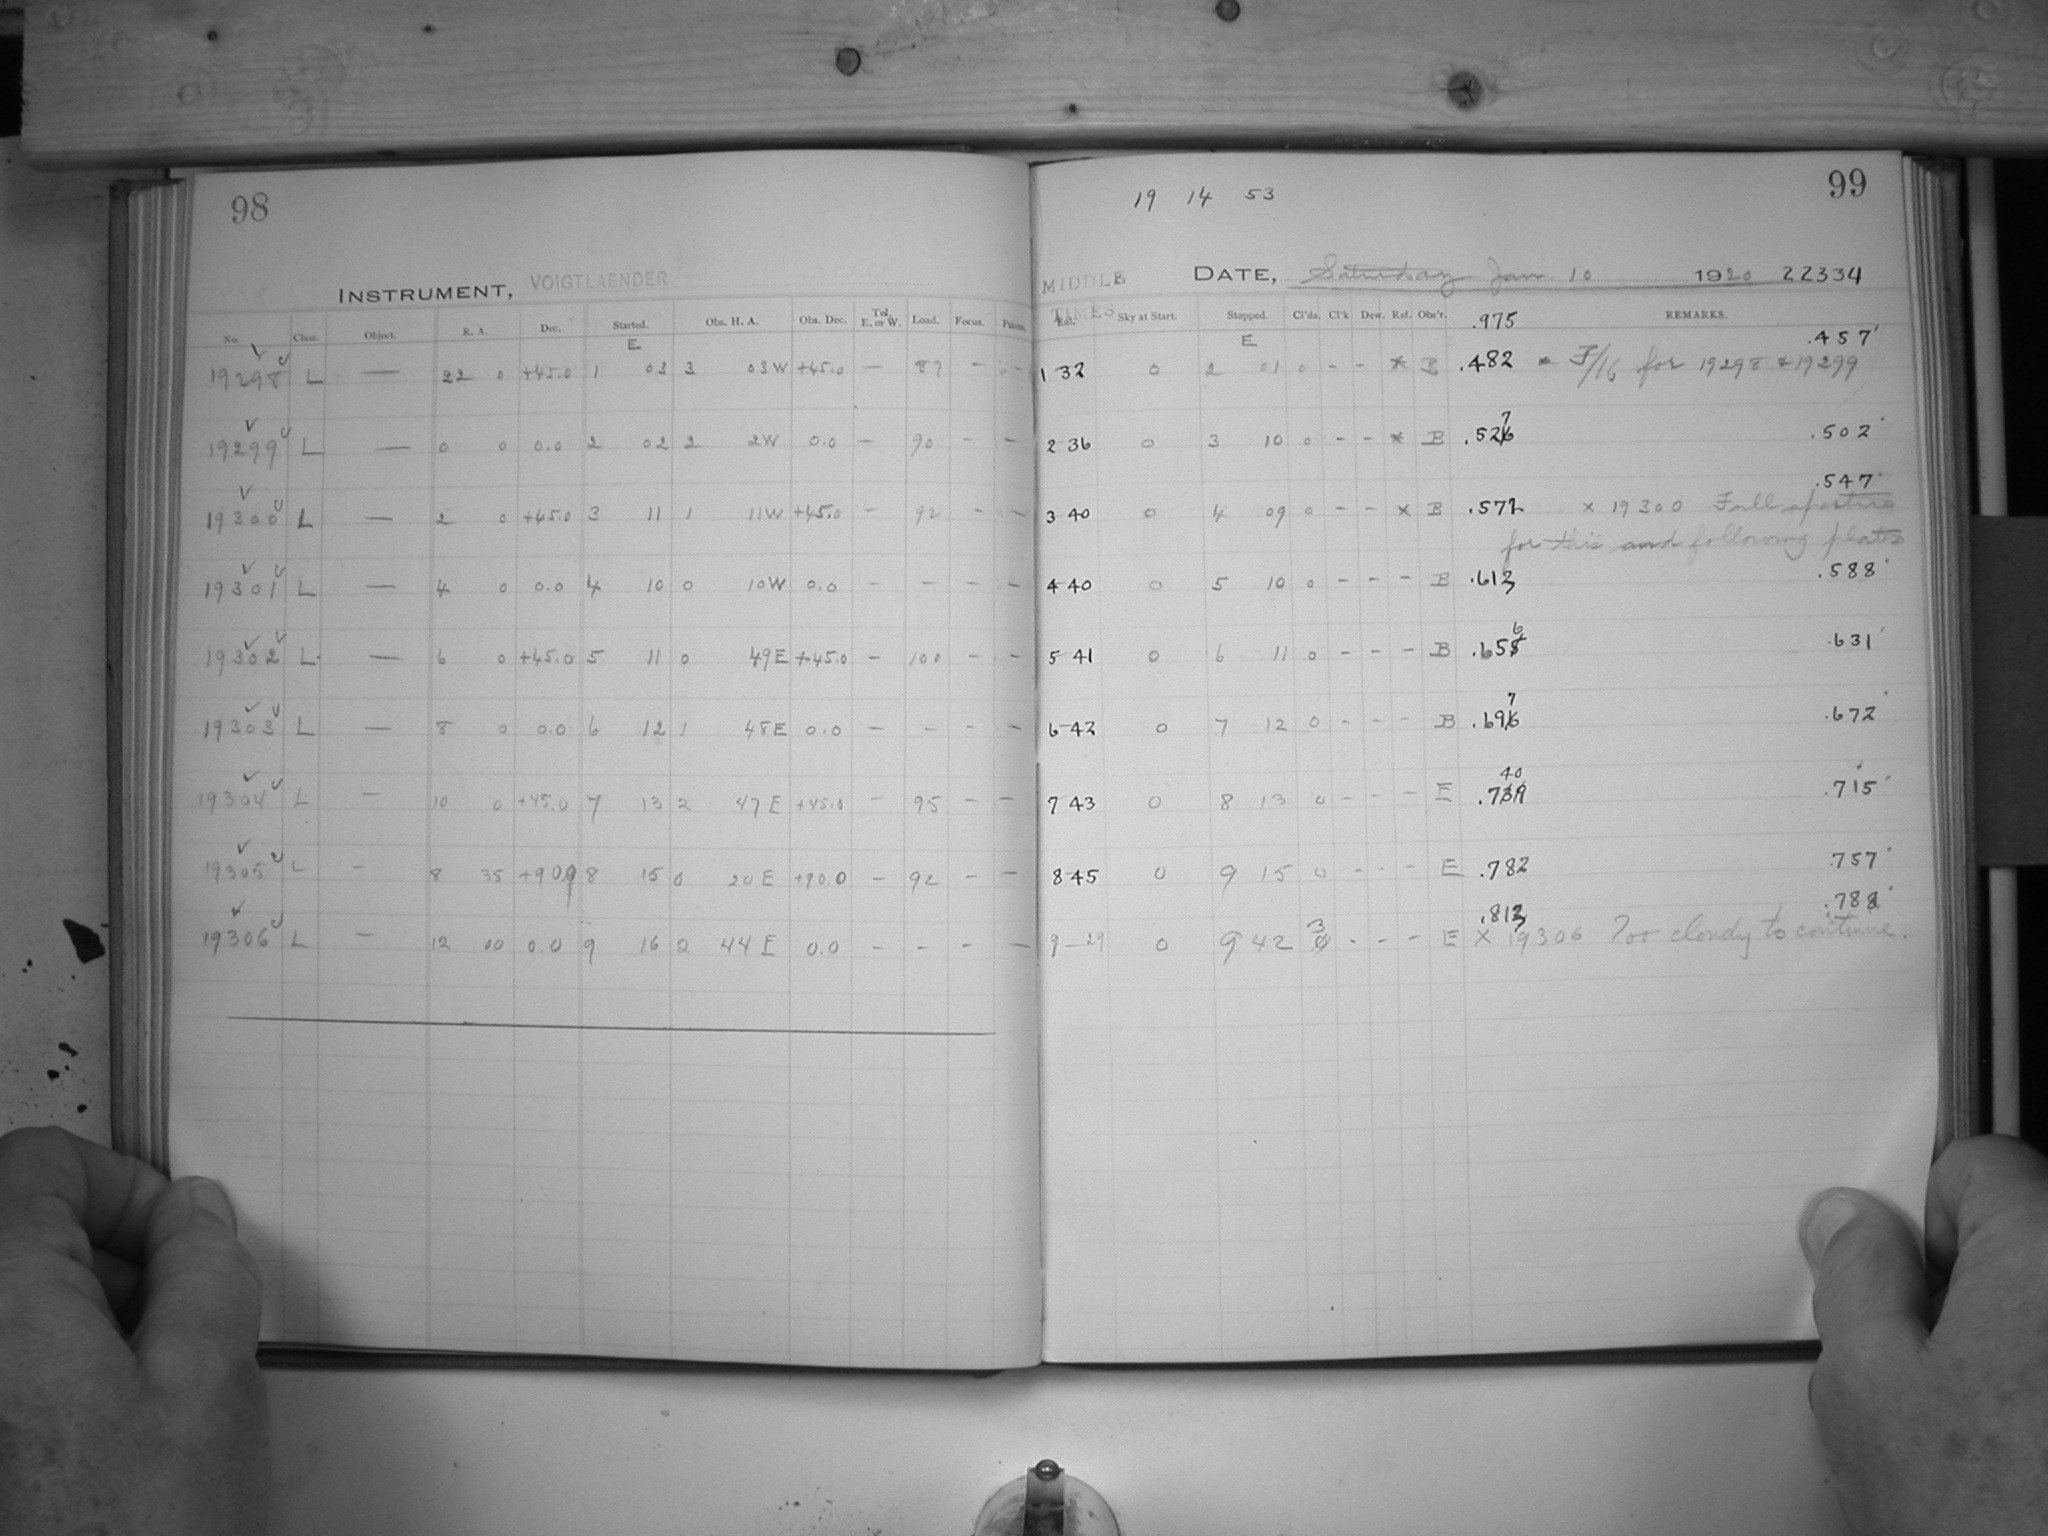 98
INSTRUMENT, VOIGTLAENDER
No. Class. Object. R. A. Dec. Started. Obs. H. A. Obs. Dec. Tel. E. or W. Load. Focus.
E
19298 L — 22 0 +45.0 1 03 3 03W +45.0 — 87 - -
19299 L — 0 0 0.0 2 02 2 2W 0.0 — 90 - -
19300 L — 2 0 +45.0 3 11 1 11W +45.0 - 92 - -
19301 L — 4 0 0.0 4 10 0 10W 0.0 - - - -
19302 L — 6 0 +45.0 5 11 0 49E +45.0 - 100 - -
19303 L — 8 0 0.0 6 12 1 48E 0.0 - - - -
19304 L — 10 0 +45.0 7 13 2 47E +45.0 - 95 - -
19305 L - 8 35 +90.0 8 15 0 20E +90.0 - 92 - -
19306 L - 12 00 0.0 9 16 2 44E 0.0 - - - -
99
19 14 53
MIDDLE TIMES
DATE, Saturday Jan 10 1920 22334
Sky at Start. Stopped. Cl'ds. Cl'k Dew. Ref. Obs'r. .975 REMARKS.
E
.457
1 32 0 2 01 0 - - * B .482 * F/16 for 19298 & 19299
7
2 36 0 3 10 0 - - * B .526 .502
.547
3 40 0 4 09 0 - - * B .572 × 19300 Full aperture
for this and following plates
4 40 0 5 10 0 - - - B .613 .588
6
5 41 0 6 11 0 - - - B .655 .631
7
6 42 0 7 12 0 - - - B .696 .672
40
7 43 0 8 13 0 - - - E .739 .715
8 45 0 9 15 0 - - - E .782 .757
.813 .788
3
9—29 0 9 42 0 - - - E × 19306 Too cloudy to continue.